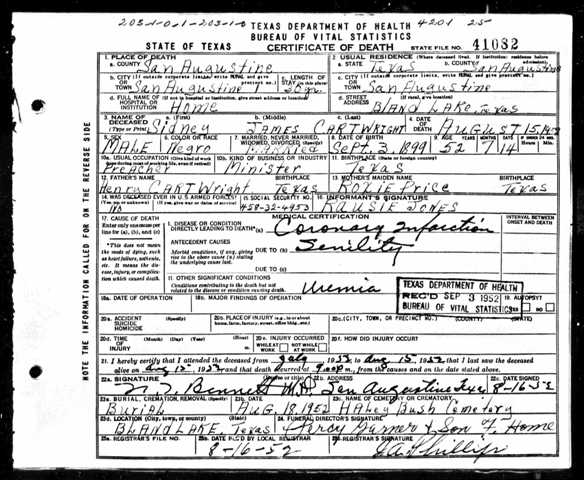 203-1-0-1-203-1-0 TEXAS DEPARTMENT OF HEALTH 4201 25
BUREAU OF VITAL STATISTICS
STATE OF TEXAS CERTIFICATE OF DEATH STATE FILE NO. 41082
1. PLACE OF DEATH 2. USUAL RESIDENCE (Where deceased lived. If institution: residence before admission)
a. COUNTY San Augustine a. STATE Texas b. COUNTY San Augustine
b. CITY (If outside corporate limits, write RURAL and give precinct no.) OR TOWN San Augustine c. LENGTH OF STAY (in this place) c. CITY (If outside corporate limits, write RURAL and give precinct no.) OR TOWN San Augustine
d. FULL NAME OF (If not in hospital or institution, give street address or location) HOSPITAL OR INSTITUTION Home d. STREET ADDRESS (If rural, give location) BLAND LAKE, Texas
3. NAME OF DECEASED (Type or Print) a. (First) Sidney b. (Middle) JAMES c. (Last) CARTWRIGHT 4. DATE OF DEATH AUGUST 15,
5. SEX MALE 6. COLOR OR RACE Negro 7. MARRIED, NEVER MARRIED, WIDOWED, DIVORCED (Specify) Married 8. DATE OF BIRTH Sept. 3, 1899 9. AGE YEARS 52
10a. USUAL OCCUPATION (Give kind of work done during most of working life, even if retired) Preacher 10b. KIND OF BUSINESS OR INDUSTRY Minister 11. BIRTHPLACE (State or foreign country) Texas
12. FATHER'S NAME BIRTHPLACE 13. MOTHER'S MAIDEN NAME BIRTHPLACE
Henry CARTWright Texas ROXIE Price Texas
14. WAS DECEASED EVER IN U.S. ARMED FORCES? (Yes, no, or unknown) No 15. SOCIAL SECURITY NO. 458-32-4953 16. INFORMANT'S SIGNATURE JONES
17. CAUSE OF DEATH MEDICAL CERTIFICATION INTERVAL BETWEEN ONSET AND DEATH
Enter only one cause per line for (a), (b), and (c) I. DISEASE OR CONDITION DIRECTLY LEADING TO DEATH* (a) Coronary Infarction
*This does not mean the mode of dying, such as heart failure, asthenia, etc. It means the disease, injury, or complication which caused death. ANTECEDENT CAUSES
Morbid conditions, if any, giving rise to the above cause (a) stating the underlying cause last. DUE TO (b) Senility
DUE TO (c)
II. OTHER SIGNIFICANT CONDITIONS
Conditions contributing to the death but not related to the disease or condition causing death. Uremia
TEXAS DEPARTMENT OF HEALTH
REC'D SEP 3 1952
BUREAU OF VITAL STATISTICS
18a. DATE OF OPERATION 18b. MAJOR FINDINGS OF OPERATION 19. AUTOPSY
20a. ACCIDENT SUICIDE HOMICIDE 20b. PLACE OF INJURY (e.g., in or about home, farm, factory, street, office bldg., etc.) 20c. (CITY, TOWN, OR PRECINCT NO.) (COUNTY) (STATE)
20d. TIME OF INJURY 20e. INJURY OCCURRED WHILE AT WORK NOT WHILE AT WORK 20f. HOW DID INJURY OCCUR?
21. I hereby certify that I attended the deceased from July 1952 to Aug 15 1952 that I last saw the deceased
alive on Aug 15 1952 and that death occurred at m., from the causes and on the date stated above.
22a. SIGNATURE Bennett M.D. (Degree or title) 22b. ADDRESS San Augustine Tex 22c. DATE SIGNED 8-16-52
23a. BURIAL, CREMATION, REMOVAL (Specify) Burial 23b. DATE Aug. 18, 1952 23c. NAME OF CEMETERY OR CREMATORY HALEY Bush Cemetery
23d. LOCATION (City, town, or county) (State) BLAND LAKE, Texas 24. FUNERAL DIRECTOR'S SIGNATURE & Son F. Home
25a. REGISTRAR'S FILE NO. 25b. DATE REC'D BY LOCAL REGISTRAR 8-16-52 25c. REGISTRAR'S SIGNATURE Phillips
NOTE THE INFORMATION CALLED FOR ON THE REVERSE SIDE